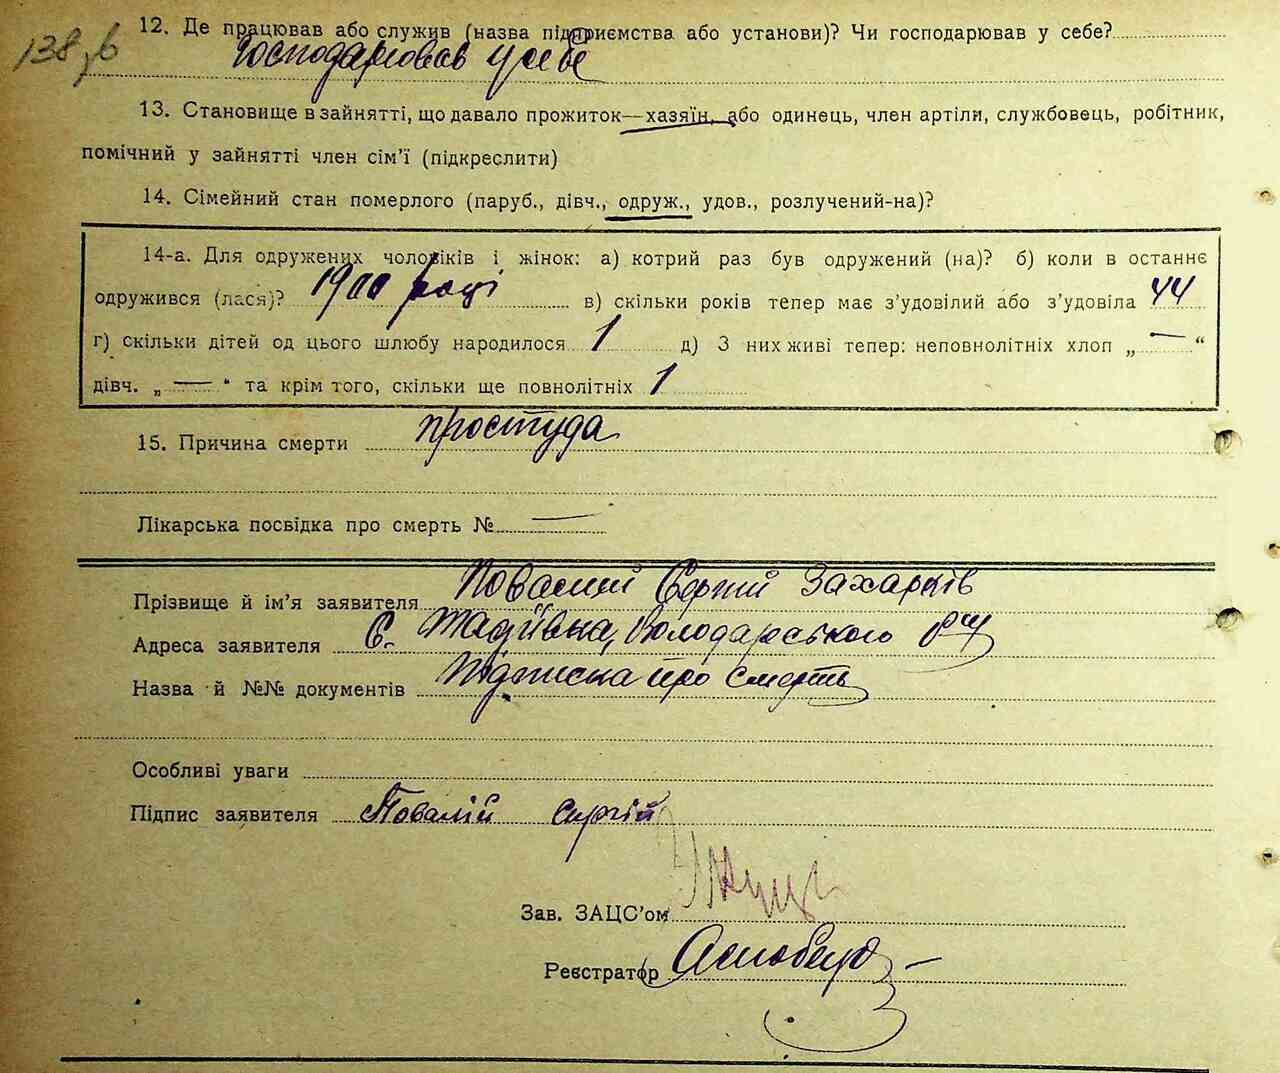 138 зв
12. Де працював або служив (назва підприємства або установи)? Чи господарював у себе?
Господарював у себе
13. Становище в зайнятті, що давало прожиток—хазяїн, або одинець, член артіли, службовець, робітник,
помічний у зайнятті член сім'ї (підкреслити)
14. Сімейний стан померлого (паруб., дівч., одруж., удов., розлучений-на)?
14-а. Для одружених чоловіків і жінок: а) котрий раз був одружений (на)? б) коли в останнє
одружився (лася)? 1900 році в) скільки років тепер має з'удовілий або з'удовіла 44
г) скільки дітей од цього шлюбу народилося 1 д) З них живі тепер: неповнолітніх хлоп „ — “
дівч. „ — “ та крім того, скільки ще повнолітніх 1
15. Причина смерти простуда
Лікарська посвідка про смерть № —
Прізвище й ім'я заявителя Повалій Сергій Захарків
Адреса заявителя С. Володарського
Назва й №№ документів Підписка про смерть
Особливі уваги
Підпис заявителя Повалій Сергій
Зав. ЗАЦС'ом
Реєстратор